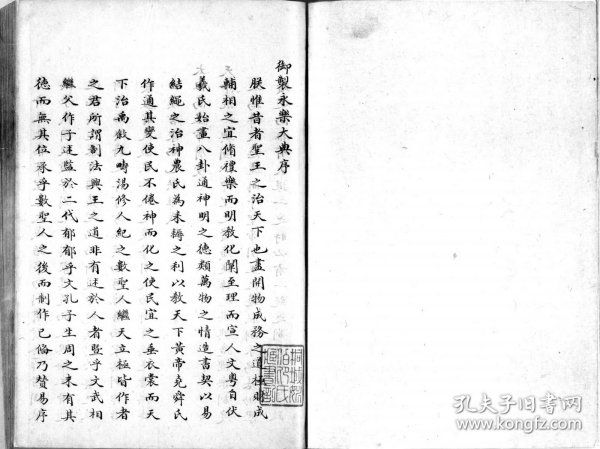 御製永樂大典序
朕惟昔者聖王之治天下也盡開物成務之道極財成
輔相之宜脩禮樂而明教化闡至理而宣人文粵自伏
羲氏始畫八卦通神明之德類萬物之情造書契以易
結繩之治神農氏為耒耨之利以教天下黃帝堯舜氏
作通其變使民不倦神而化之使民宜之垂衣裳而天
下治禹敘九疇湯修人紀之數聖人繼天立極皆作者
之君所謂制法興王之道非有述於人者暨乎文武相
繼父作子述監於二代郁郁乎文孔子生周之末有其
德而無其位承乎數聖人之後而制作已備乃贊易序
孔夫子旧书网